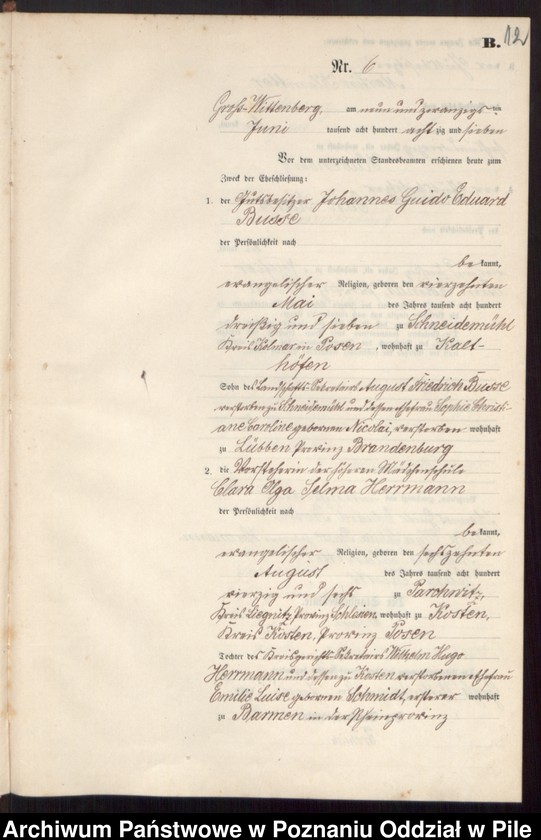 B. 12
Nr. 6
Groß-Wittenberg, am neun und zwanzigsten
Juni tausend acht hundert achtzig und sieben
Vor dem unterzeichneten Standesbeamten erschienen heute zum
Zweck der Eheschließung:
1. der Gutsbesitzer Johannes Guido Eduard
Busse
der Persönlichkeit nach
bekannt,
evangelischer Religion, geboren den vierzehnten
Mai des Jahres tausend acht hundert
dreißig und sieben zu Schneidemühl
Kreis Kolmar in Posen, wohnhaft zu Kalt-
höfen
Sohn des Landschafts-Sekretairs August Friedrich Busse
verstorben zu Schneidemühl und dessen Ehefrau Sophie Christi-
ane Caroline geborenen Nicolai, verstorben wohnhaft
zu Lübben Provinz Brandenburg
2. die Vorsteherin der höheren Mädchenschule
Clara Olga Selma Herrmann
der Persönlichkeit nach
bekannt,
evangelischer Religion, geboren den sechzehnten
August des Jahres tausend acht hundert
vierzig und sechs zu Parchwitz,
Kreis Liegnitz, Provinz Schlesien, wohnhaft zu Kosten,
Kreis Kosten, Provinz Posen
Tochter des Kreisgerichts-Sekretairs Wilhelm Hugo
Herrmann und dessen zu Kosten verstorbenen Ehefrau
Emilie Luise geborenen Schmidt, ersterer wohnhaft
zu Barmen in der Rheinprovinz
Archiwum Państwowe w Poznaniu Oddział w Pile